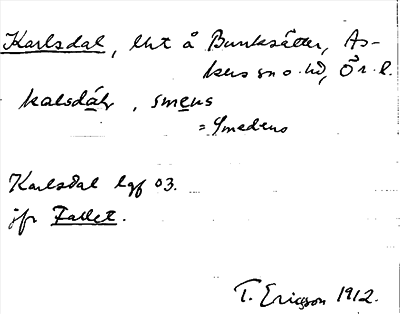 Karlsdal, lht å Bunksätter, As-
kers sn o. hd, Ör. l.
kalsdáɫ, smens
= Smedens
Karlsdal lgf 03.
jfr Fallet.
T. Ericsson 1912.